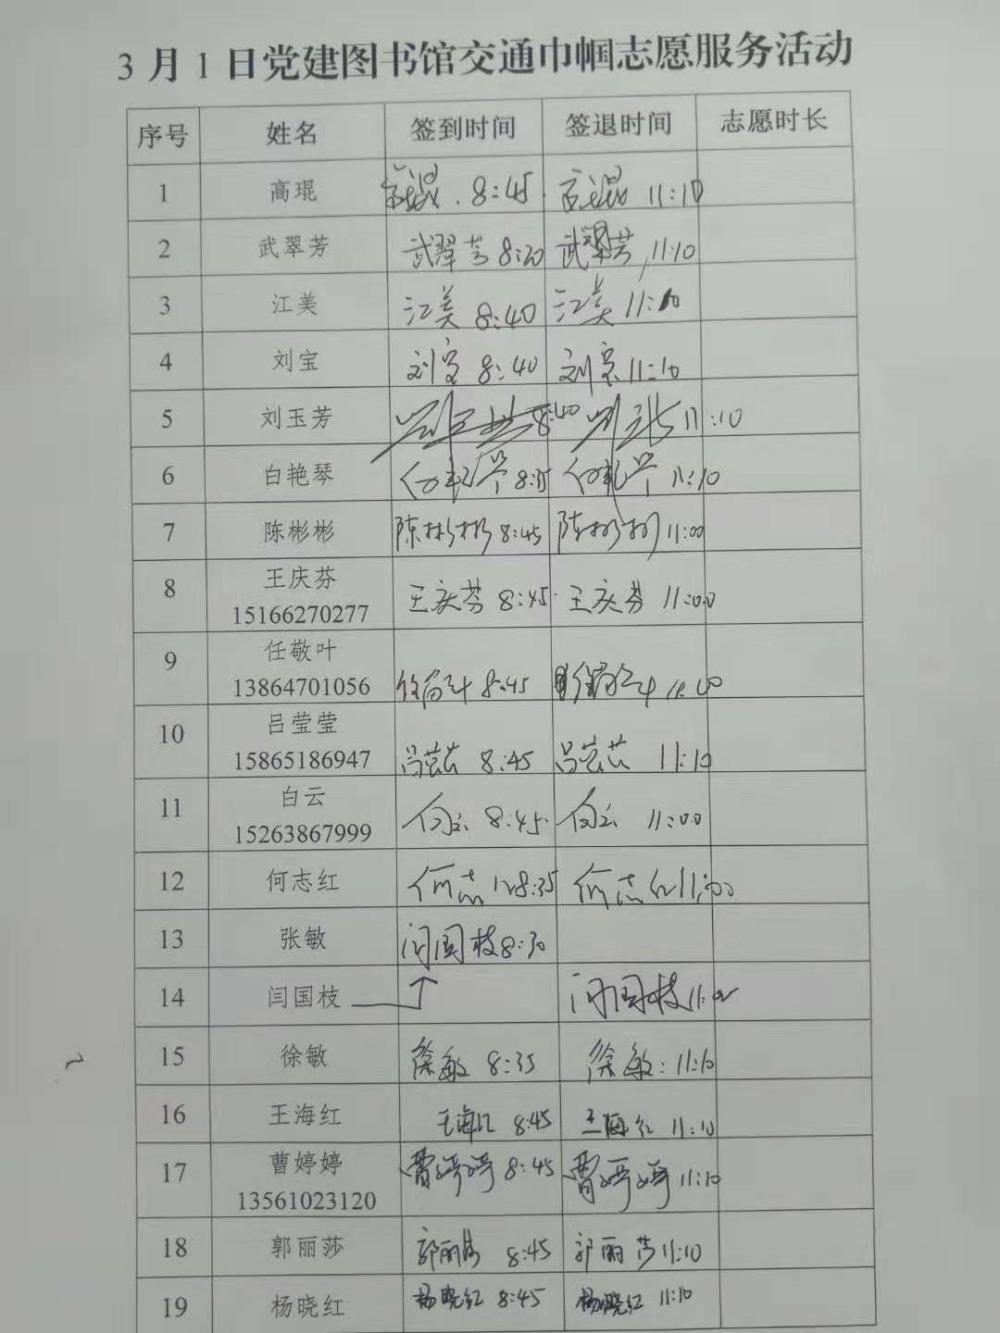 3月1日党建图书馆交通巾帼志愿服务活动
序号 姓名 签到时间 签退时间 志愿时长
1 高琨 高琨. 8:45 高琨 11:10
2 武翠芳 武翠芳 8:20 武翠芳 11:10
3 江美 江美 8:40 江美 11:10
4 刘宝 刘宝 8:40 刘宝 11:10
5 刘玉芳 8:40 11:10
6 白艳琴 11:10
7 陈彬彬 陈彬彬 8:45 陈彬彬 11:00
8 王庆芬 王庆芬 8:45 王庆芬 11:00
15166270277
9 任敬叶 8:45
13864701056
10 吕莹莹 8:45 11:10
15865186947
11 白云 白云 8:45 白云 11:00
15263867999
12 何志红 何志红 8:35 何志红 11:00
13 张敏 闫国枝 8:30
14 闫国枝 闫国枝
15 徐敏 徐敏 8:35 徐敏: 11:10
16 王海红 王海红 8:45 王海红 11:10
17 曹婷婷 曹婷婷 8:45 曹婷婷 11:10
13561023120
18 郭丽莎 郭丽莎 8:45 郭丽莎 11:10
19 杨晓红 杨晓红 8:45 杨晓红 11:10